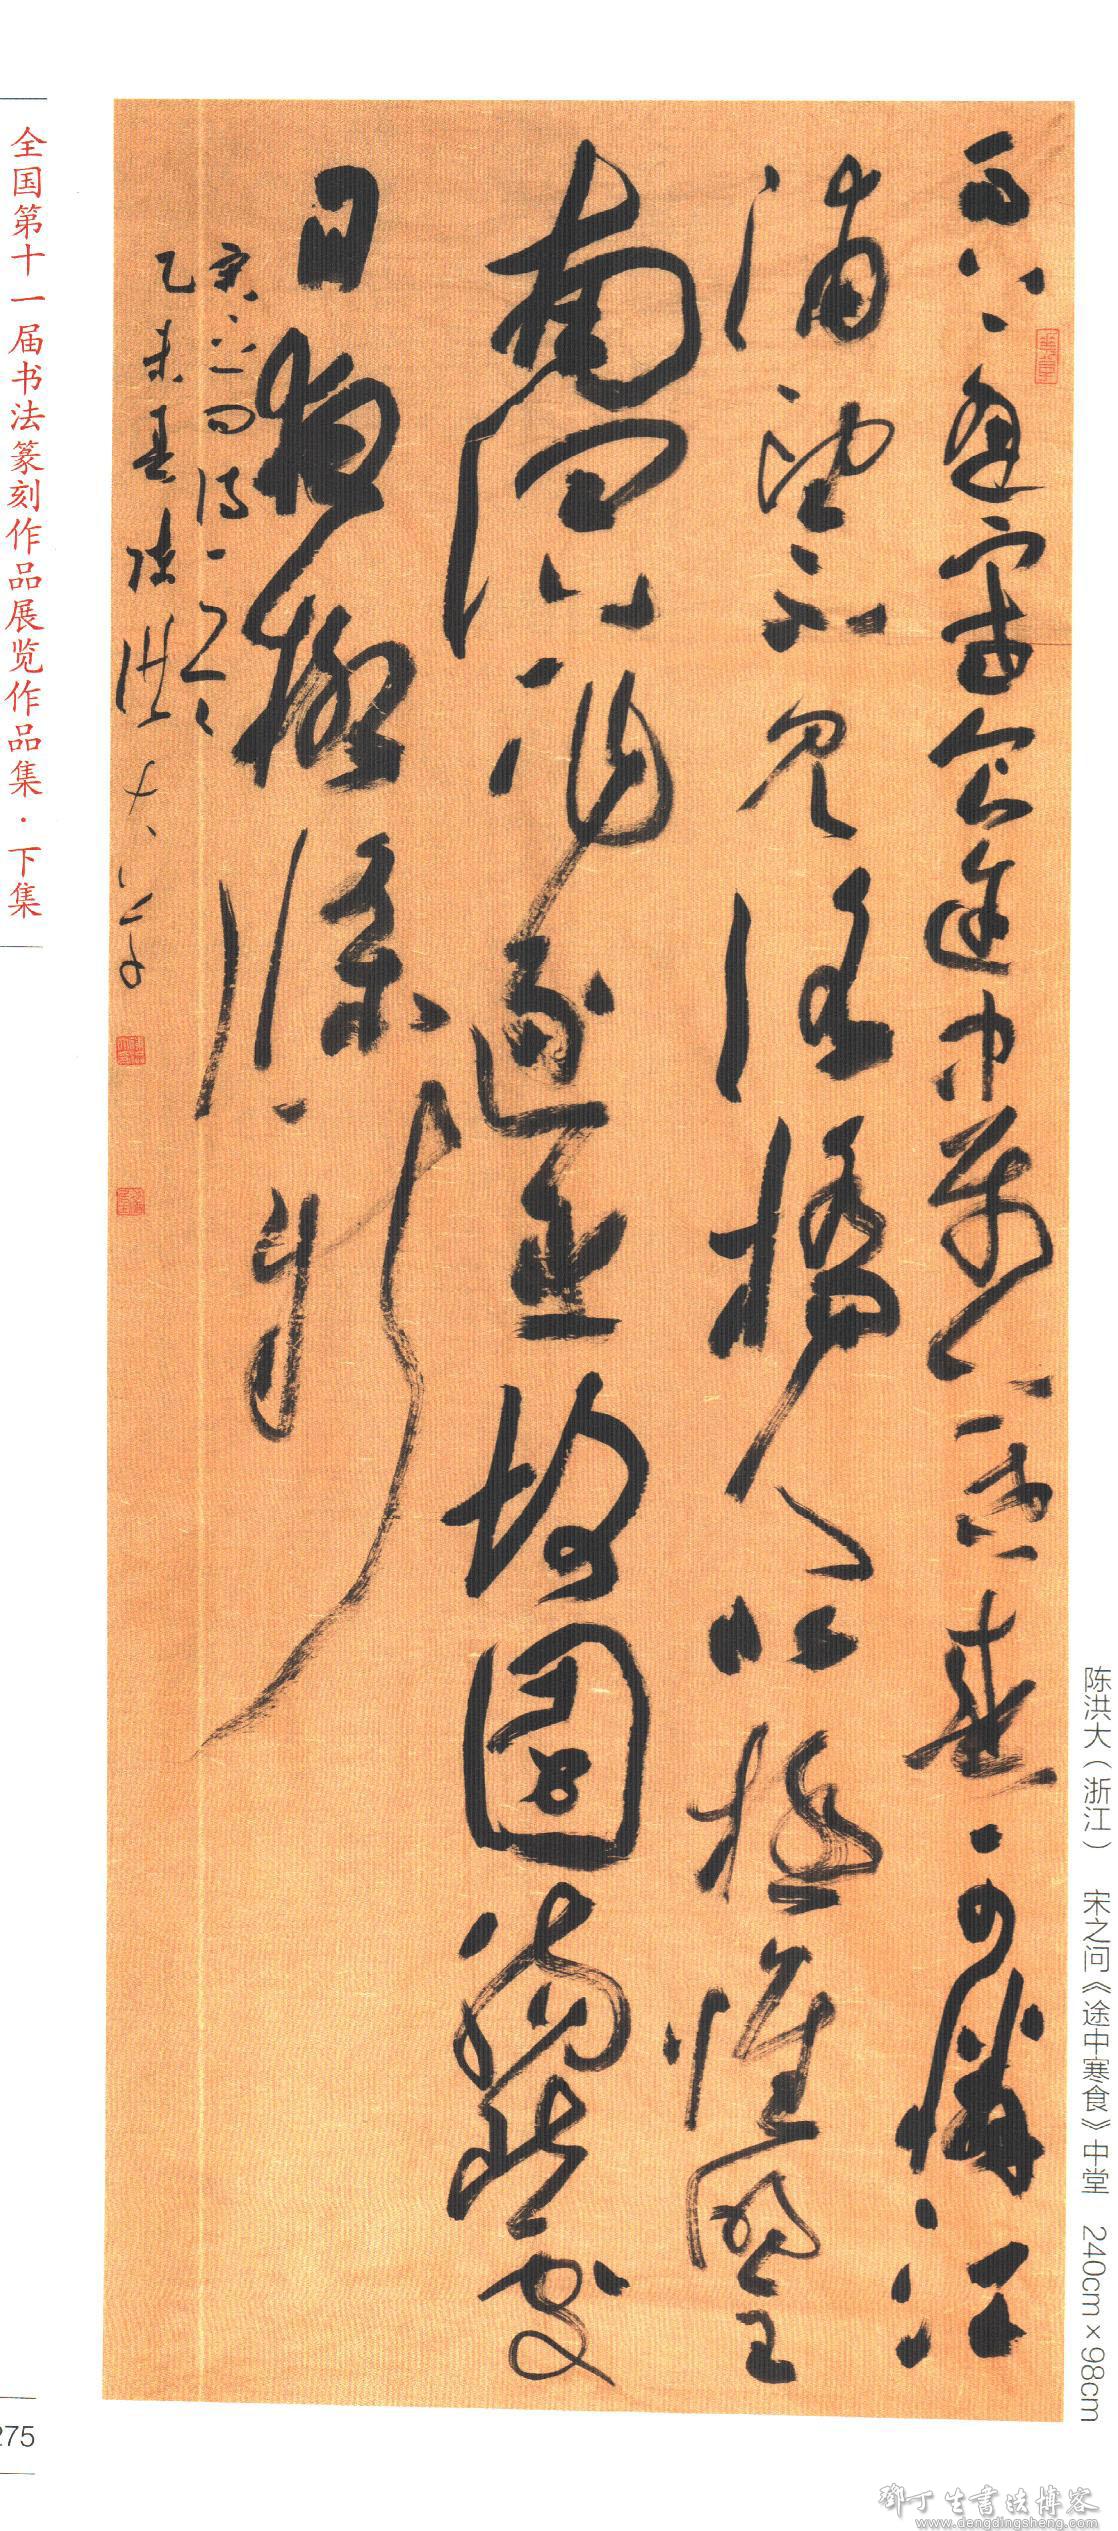 全国第十一届书法篆刻作品展览作品集·下集
馬上逢寒食途中屬暮春可憐江
浦望不見洛橋人北極懷明主
南溟作逐臣故園腸斷處
日夜柳條新
宋之问詩一首
乙未春陳洪大書
陈洪大（浙江） 宋之问《途中寒食》中堂 240cm×98cm
275
鄧丁生書法博客
www.dengdingsheng.com